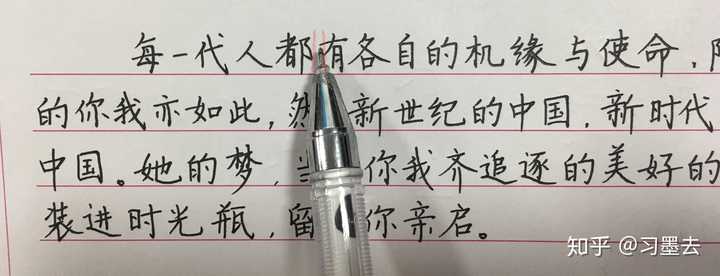 每一代人都有各自的机缘与使命，
的你我亦如此，新世纪的中国，新时代
中国。她的梦，你我齐追逐的美好的
装进时光瓶，留你亲启。
知乎 @习墨去